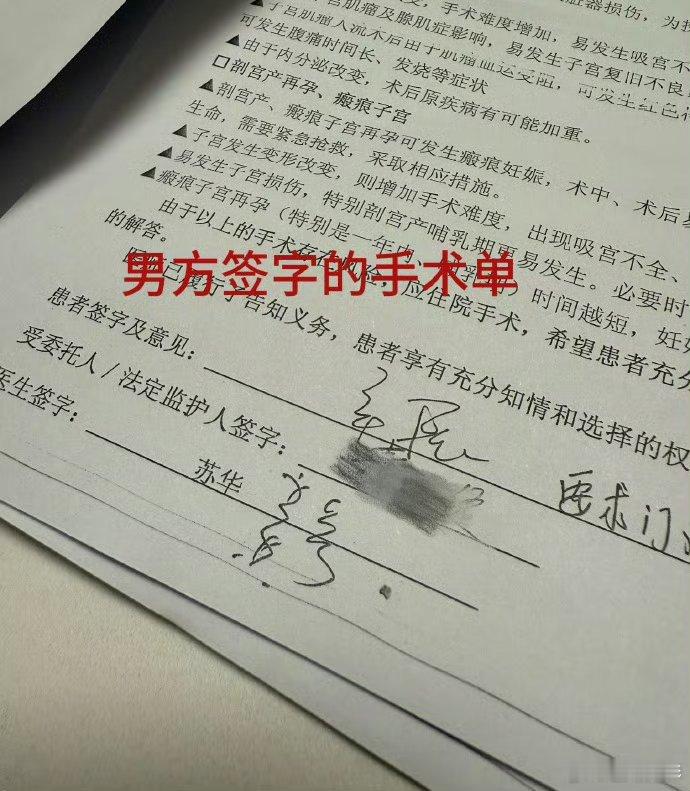 脏器损伤，为扌
宫肌瘤及腺肌症影响，手术难度增加，易发生吸宫不
▲子宫肌瘤人流术后由于肌瘤血运受阻，易发生子宫复旧不良
可发生腹痛时间长、发烧等症状
▲由于内分泌改变，术后原疾病有可能加重。
□剖宫产再孕、瘢痕子宫
▲剖宫产、瘢痕子宫再孕可发生瘢痕妊娠，术中、术后
生命，需要紧急抢救，采取相应措施。
▲子宫发生变形改变，则增加手术难度，出现吸宫不全、
▲易发生子宫损伤，特别剖宫产哺乳期更易发生。必要时
▲瘢痕子宫再孕（特别是一年内、哺乳期）时间越短，妊
由于以上的手术存在风险，应住院手术，希望患者充分
的解答。
男方签字的手术单
已履行了告知义务，患者享有充分知情和选择的权
患者签字及意见：
受委托人/法定监护人签字：
要求门
医生签字：
苏华